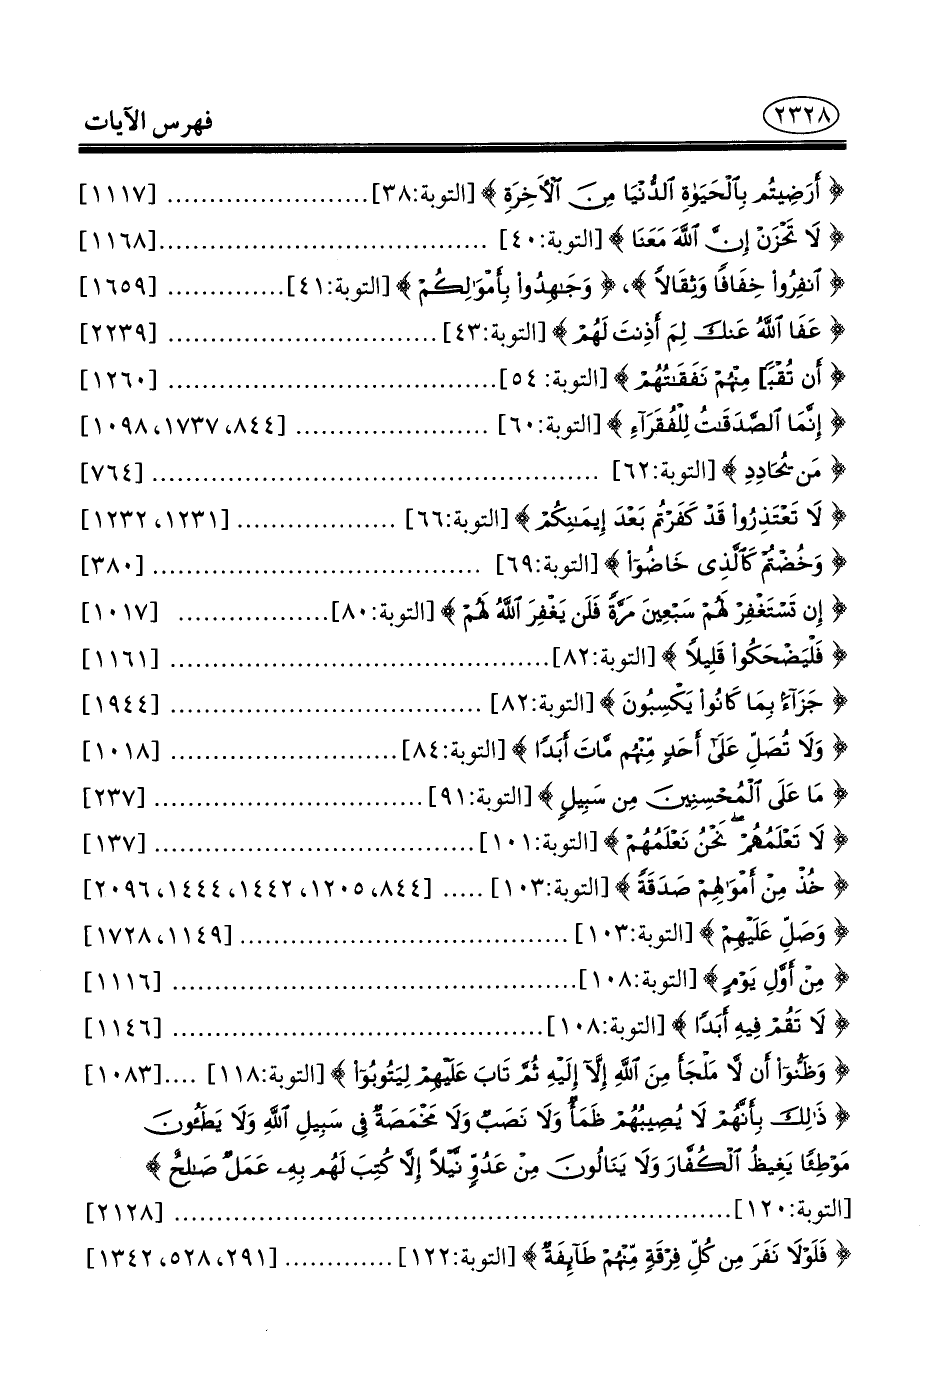 ٢٣٢٨
فهرس الآيات
﴿ أَرَضِيتُم بِٱلْحَيَوٰةِ ٱلدُّنْيَا مِنَ ٱلْأَخِرَةِ ﴾ [التوبة:٣٨]........................ [١١١٧]
﴿ لَا تَحْزَنْ إِنَّ ٱللَّهَ مَعَنَا ﴾ [التوبة:٤٠] .......................................[١١٦٨]
﴿ ٱنفِرُوا۟ خِفَافًا وَثِقَالاً ﴾، ﴿ وَجَـٰهِدُوا۟ بِأَمْوَٰلِكُمْ ﴾ [التوبة:٤١].............. [١٦٥٩]
﴿ عَفَا ٱللَّهُ عَنكَ لِمَ أَذِنتَ لَهُمْ ﴾ [التوبة:٤٣]................................ [٢٢٣٩]
﴿ أَن تُقْبَلَ مِنْهُمْ نَفَقَـٰتُهُمْ ﴾ [التوبة: ٥٤]....................................... [١٢٦٠]
﴿ إِنَّمَا ٱلصَّدَقَـٰتُ لِلْفُقَرَآءِ ﴾ [التوبة:٦٠] ....................... [٨٤٤، ١٧٣٧، ١٠٩٨]
﴿ مَن يُحَادِدِ ﴾ [التوبة:٦٢] ..................................................... [٧٦٤]
﴿ لَا تَعْتَذِرُوا۟ قَدْ كَفَرْتُم بَعْدَ إِيمَـٰنِكُمْ ﴾ [التوبة:٦٦] ................... [١٢٣١، ١٢٣٢]
﴿ وَخُضْتُمْ كَٱلَّذِى خَاضُوٓا۟ ﴾ [التوبة:٦٩] ....................................... [٣٨٠]
﴿ إِن تَسْتَغْفِرْ لَهُمْ سَبْعِينَ مَرَّةً فَلَن يَغْفِرَ ٱللَّهُ لَهُمْ ﴾ [التوبة:٨٠].................. [١٠١٧]
﴿ فَلْيَضْحَكُوا۟ قَلِيلاً ﴾ [التوبة:٨٢]............................................. [١١٦١]
﴿ جَزَآءً بِمَا كَانُوا۟ يَكْسِبُونَ ﴾ [التوبة:٨٢] ..................................... [١٩٤٤]
﴿ وَلَا تُصَلِّ عَلَىٰٓ أَحَدٍ مِّنْهُم مَّاتَ أَبَدًا ﴾ [التوبة:٨٤]........................... [١٠١٨]
﴿ مَا عَلَى ٱلْمُحْسِنِينَ مِن سَبِيلٍ ﴾ [التوبة:٩١]................................ [٢٣٧]
﴿ لَا تَعْلَمُهُمْ ۖ نَحْنُ نَعْلَمُهُمْ ﴾ [التوبة:١٠١]...................................... [١٣٧]
﴿ خُذْ مِنْ أَمْوَٰلِهِمْ صَدَقَةً ﴾ [التوبة:١٠٣] ..... [٨٤٤، ١٢٠٥، ١٤٤٢، ١٤٤٤، ٢٠٩٦]
﴿ وَصَلِّ عَلَيْهِمْ ﴾ [التوبة:١٠٣] .......................................[١١٤٩، ١٧٢٨]
﴿ مِنْ أَوَّلِ يَوْمٍ ﴾ [التوبة:١٠٨]................................................ [١١١٦]
﴿ لَا تَقُمْ فِيهِ أَبَدًا ﴾ [التوبة:١٠٨]............................................ [١١٤٦]
﴿ وَظَنُّوٓا۟ أَن لَّا مَلْجَأَ مِنَ ٱللَّهِ إِلَّآ إِلَيْهِ ثُمَّ تَابَ عَلَيْهِمْ لِيَتُوبُوٓا۟ ﴾ [التوبة:١١٨] ....[١٠٨٣]
﴿ ذَٰلِكَ بِأَنَّهُمْ لَا يُصِيبُهُمْ ظَمَأٌ وَلَا نَصَبٌ وَلَا مَخْمَصَةٌ فِى سَبِيلِ ٱللَّهِ وَلَا يَطَـُٔونَ
مَوْطِئًا يَغِيظُ ٱلْكُفَّارَ وَلَا يَنَالُونَ مِنْ عَدُوٍّ نَّيْلاً إِلَّا كُتِبَ لَهُم بِهِۦ عَمَلٌ صَـٰلِحٌ ﴾
[التوبة:١٢٠].................................................................. [٢١٢٨]
﴿ فَلَوْلَا نَفَرَ مِن كُلِّ فِرْقَةٍ مِّنْهُمْ طَآئِفَةٌ ﴾ [التوبة:١٢٢] ............. [٢٩١، ٥٢٨، ١٣٤٢]